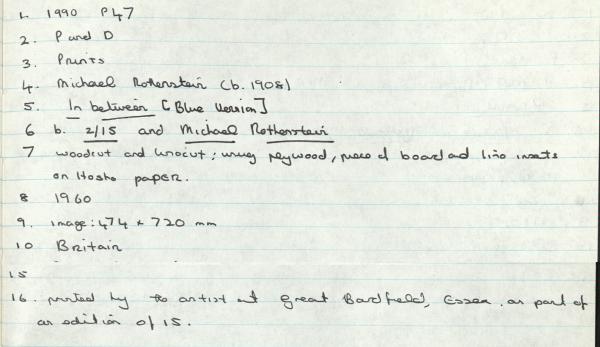 1. 1990 P47
2. P and D
3. Prints
4. Michael Rothenstein (b. 1908)
5. In between [Blue Version]
6 b. 2/15 and Michael Rothenstein
7 woodcut and linocut; using plywood, piece of board and lino insets
on Hosho paper.
8 1960
9. image: 474 x 720 mm
10 Britain
15
16. printed by the artist at Great Bardfield, Essex. as part of
an edition of 15.